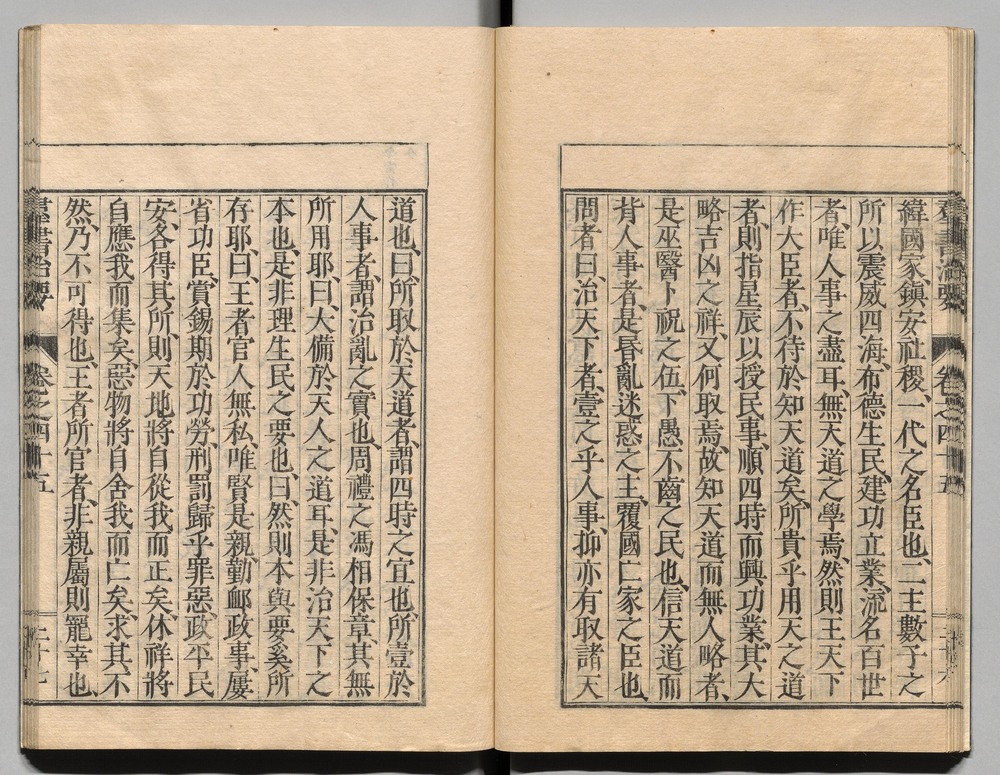 羣書治要 卷之四十五
緯國家、鎭安社稷、一代之名臣也、二主數子之
所以震威四海、布德生民、建功立業、流名百世
者、唯人事之盡耳、無天道之學焉、然則王天下
作大臣者、不待於知天道矣、所貴乎用天之道
者、則指星辰以授民事、順四時而興功業、其大
略吉凶之祥、又何取焉、故知天道而無人略者、
是巫醫卜祝之伍、下愚不齒之民也、信天道而
背人事者、是昬亂迷惑之主、覆國亡家之臣也、
問者曰、治天下者、壹之乎人事、抑亦有取諸天
道也、曰、所取於天道者、謂四時之宜也、所壹於
人事者、謂治亂之實也、周禮之馮相保章、其無
所用耶、曰、大備於天人之道耳、是非治天下之
本也、是非理生民之要也、曰、然則本與要奚所
存耶、曰、王者官人無私、唯賢是親、勤䘏政事、屢
省功臣、賞錫期於功勞、刑罰歸乎罪惡、政平民
安、各得其所、則天地將自從我、而正矣、休祥將
自應我而集矣、惡物將自舍我、而亡矣、求其不
然、乃不可得也、王者所官者、非親屬則寵幸也、
羣書治要 卷之四十五 二十七